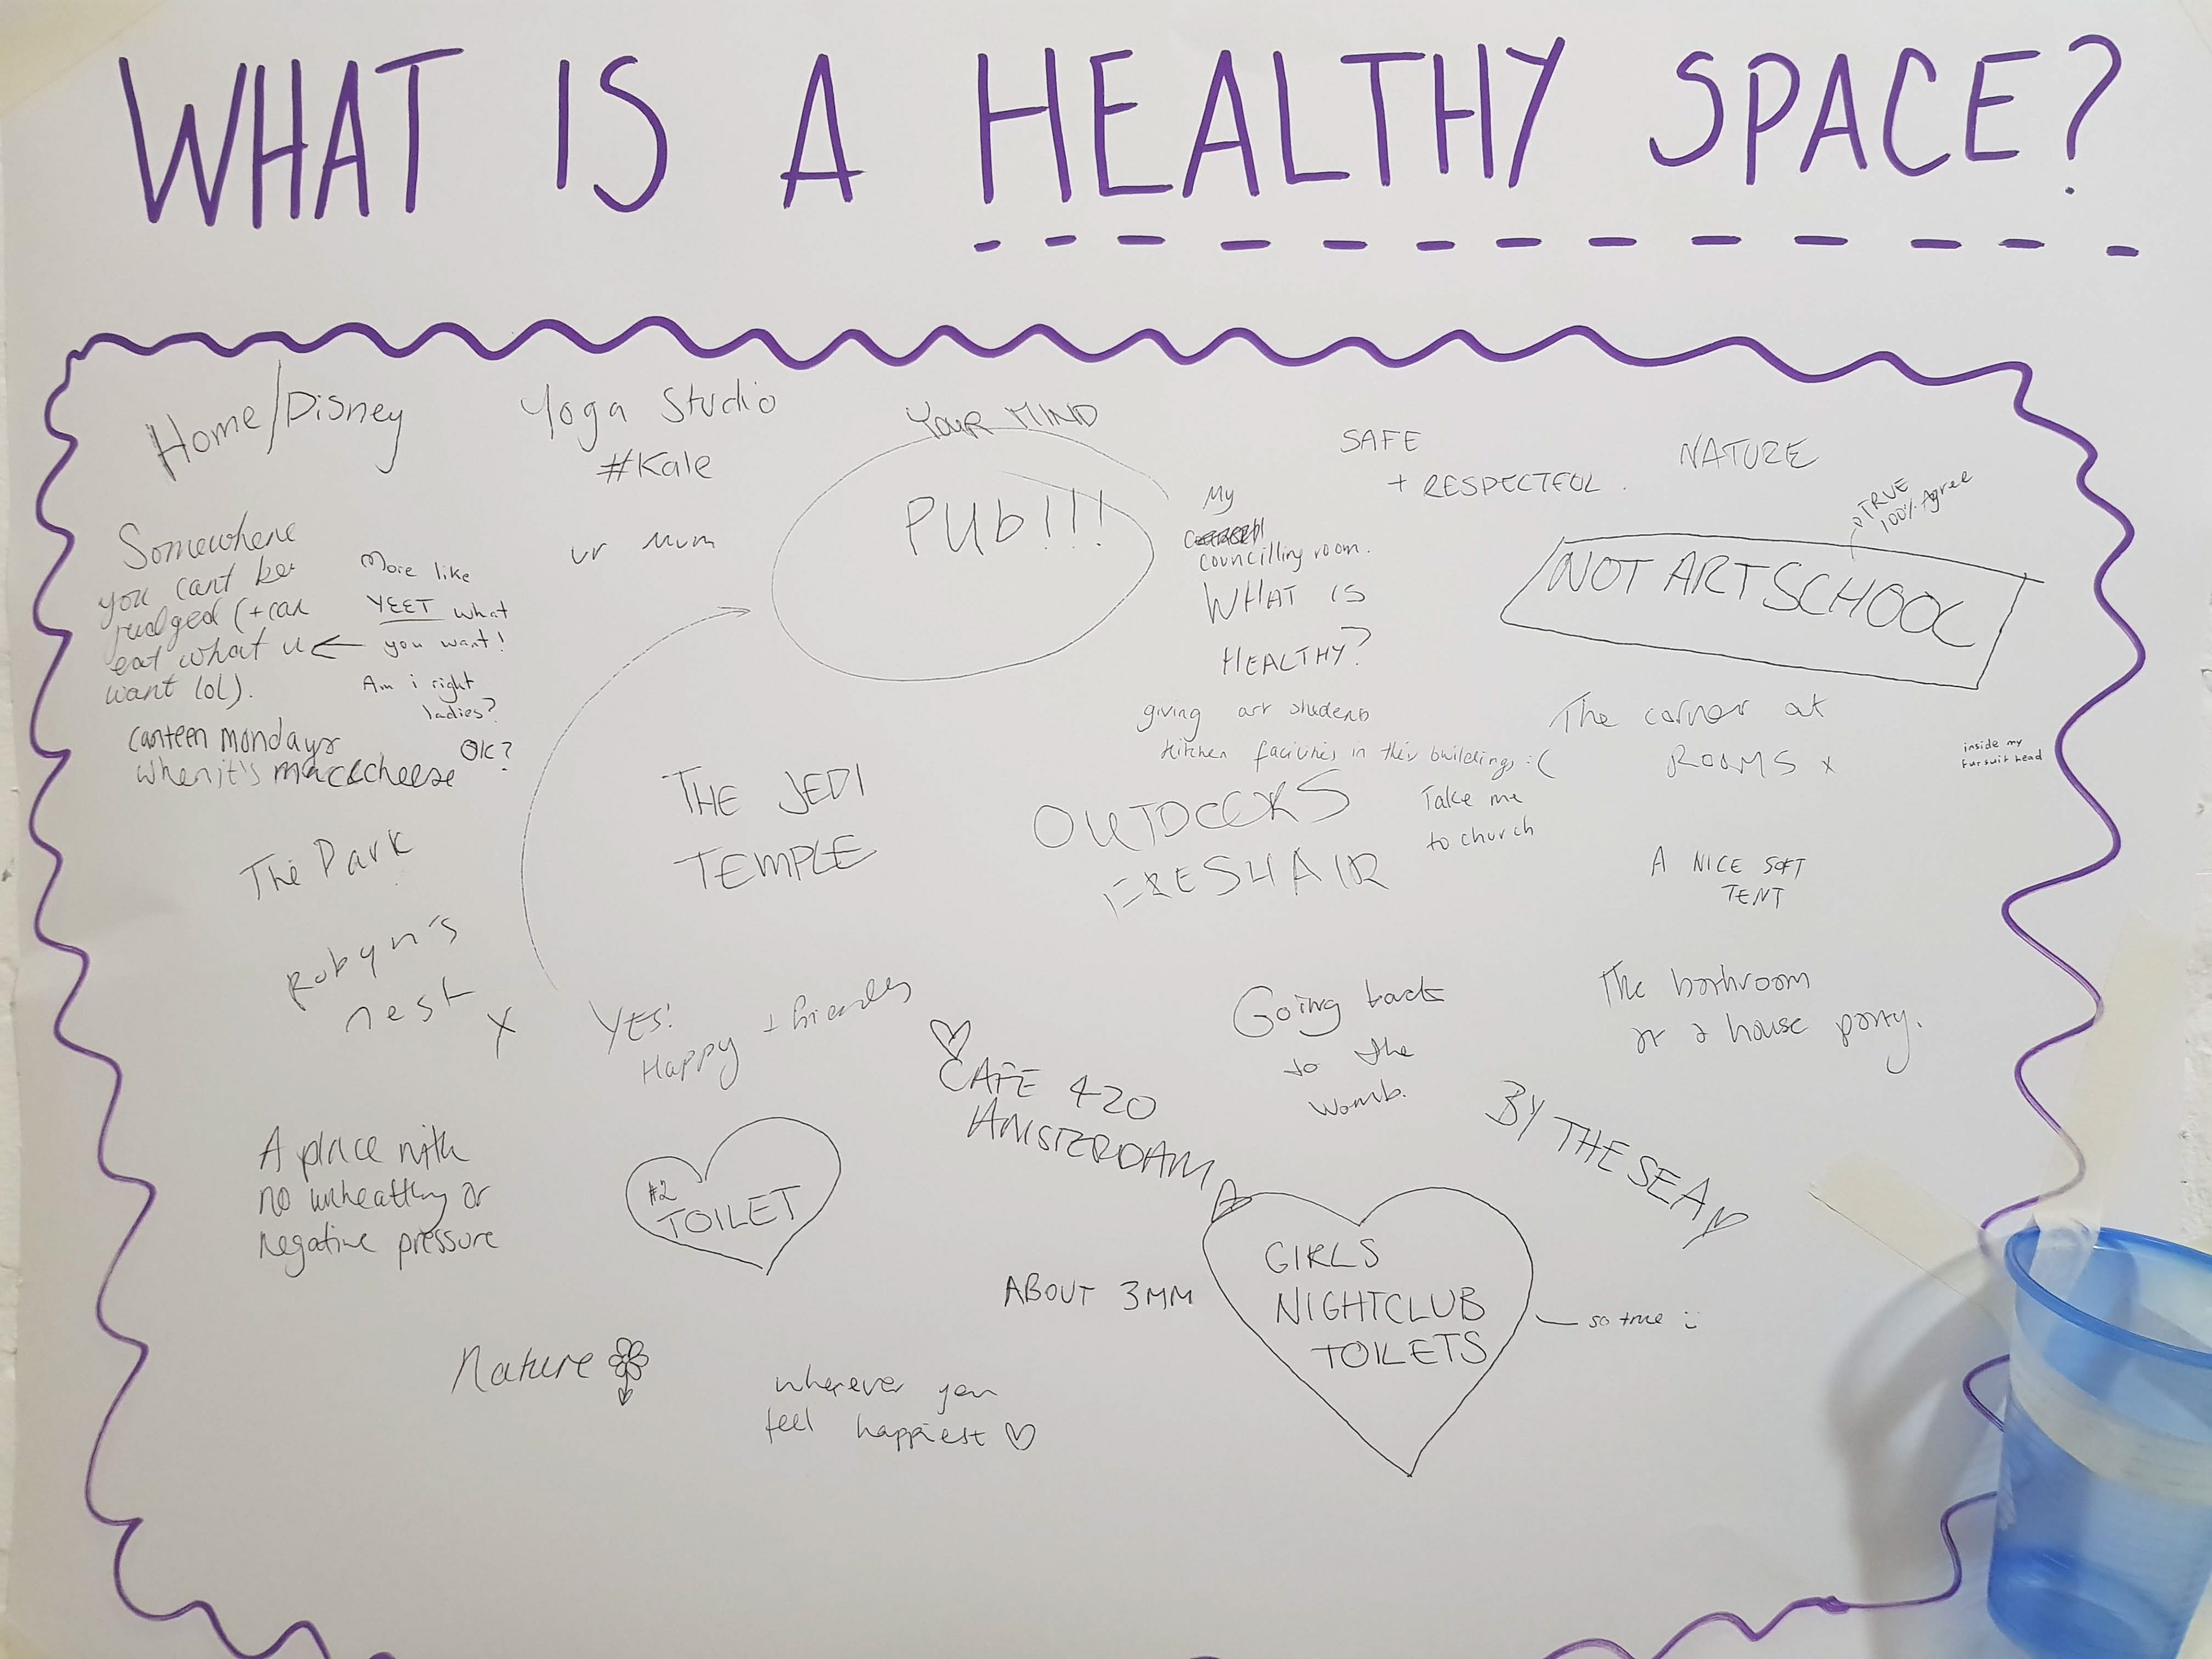 WHAT IS A HEALTHY SPACE?
Home/Disney
Yoga Studio
#Kale
YOUR MIND
PUb!!!
SAFE
+ RESPECTFUL.
NATURE
TRUE
100% Agree
NOT ART SCHOOL
Somewhere
you cant be
judged (+ can
eat what u
want lol).
More like
YEET what
you want!
Am i right
ladies?
OK?
ur mum
My
councilling room.
WHAT IS
HEALTHY?
giving art students
kitchen facilities in their buildings :(
The corner at
ROOMS x
inside my
fursuit head
canteen mondays
when it's mac&cheese
THE JEDI
TEMPLE
OUTDOORS
FRESH AIR
Take me
to church
A NICE SOFT
TENT
The Park
Robyn's
nest x
YES!
Happy + friendly
CAFE 420
AMSTERDAM
Going back
to the
womb.
The bathroom
at a house party.
BY THE SEA
A place with
no unhealthy or
negative pressure
#2
TOILET
ABOUT 3MM
GIRLS
NIGHTCLUB
TOILETS
so true :)
Nature
wherever you
feel happiest